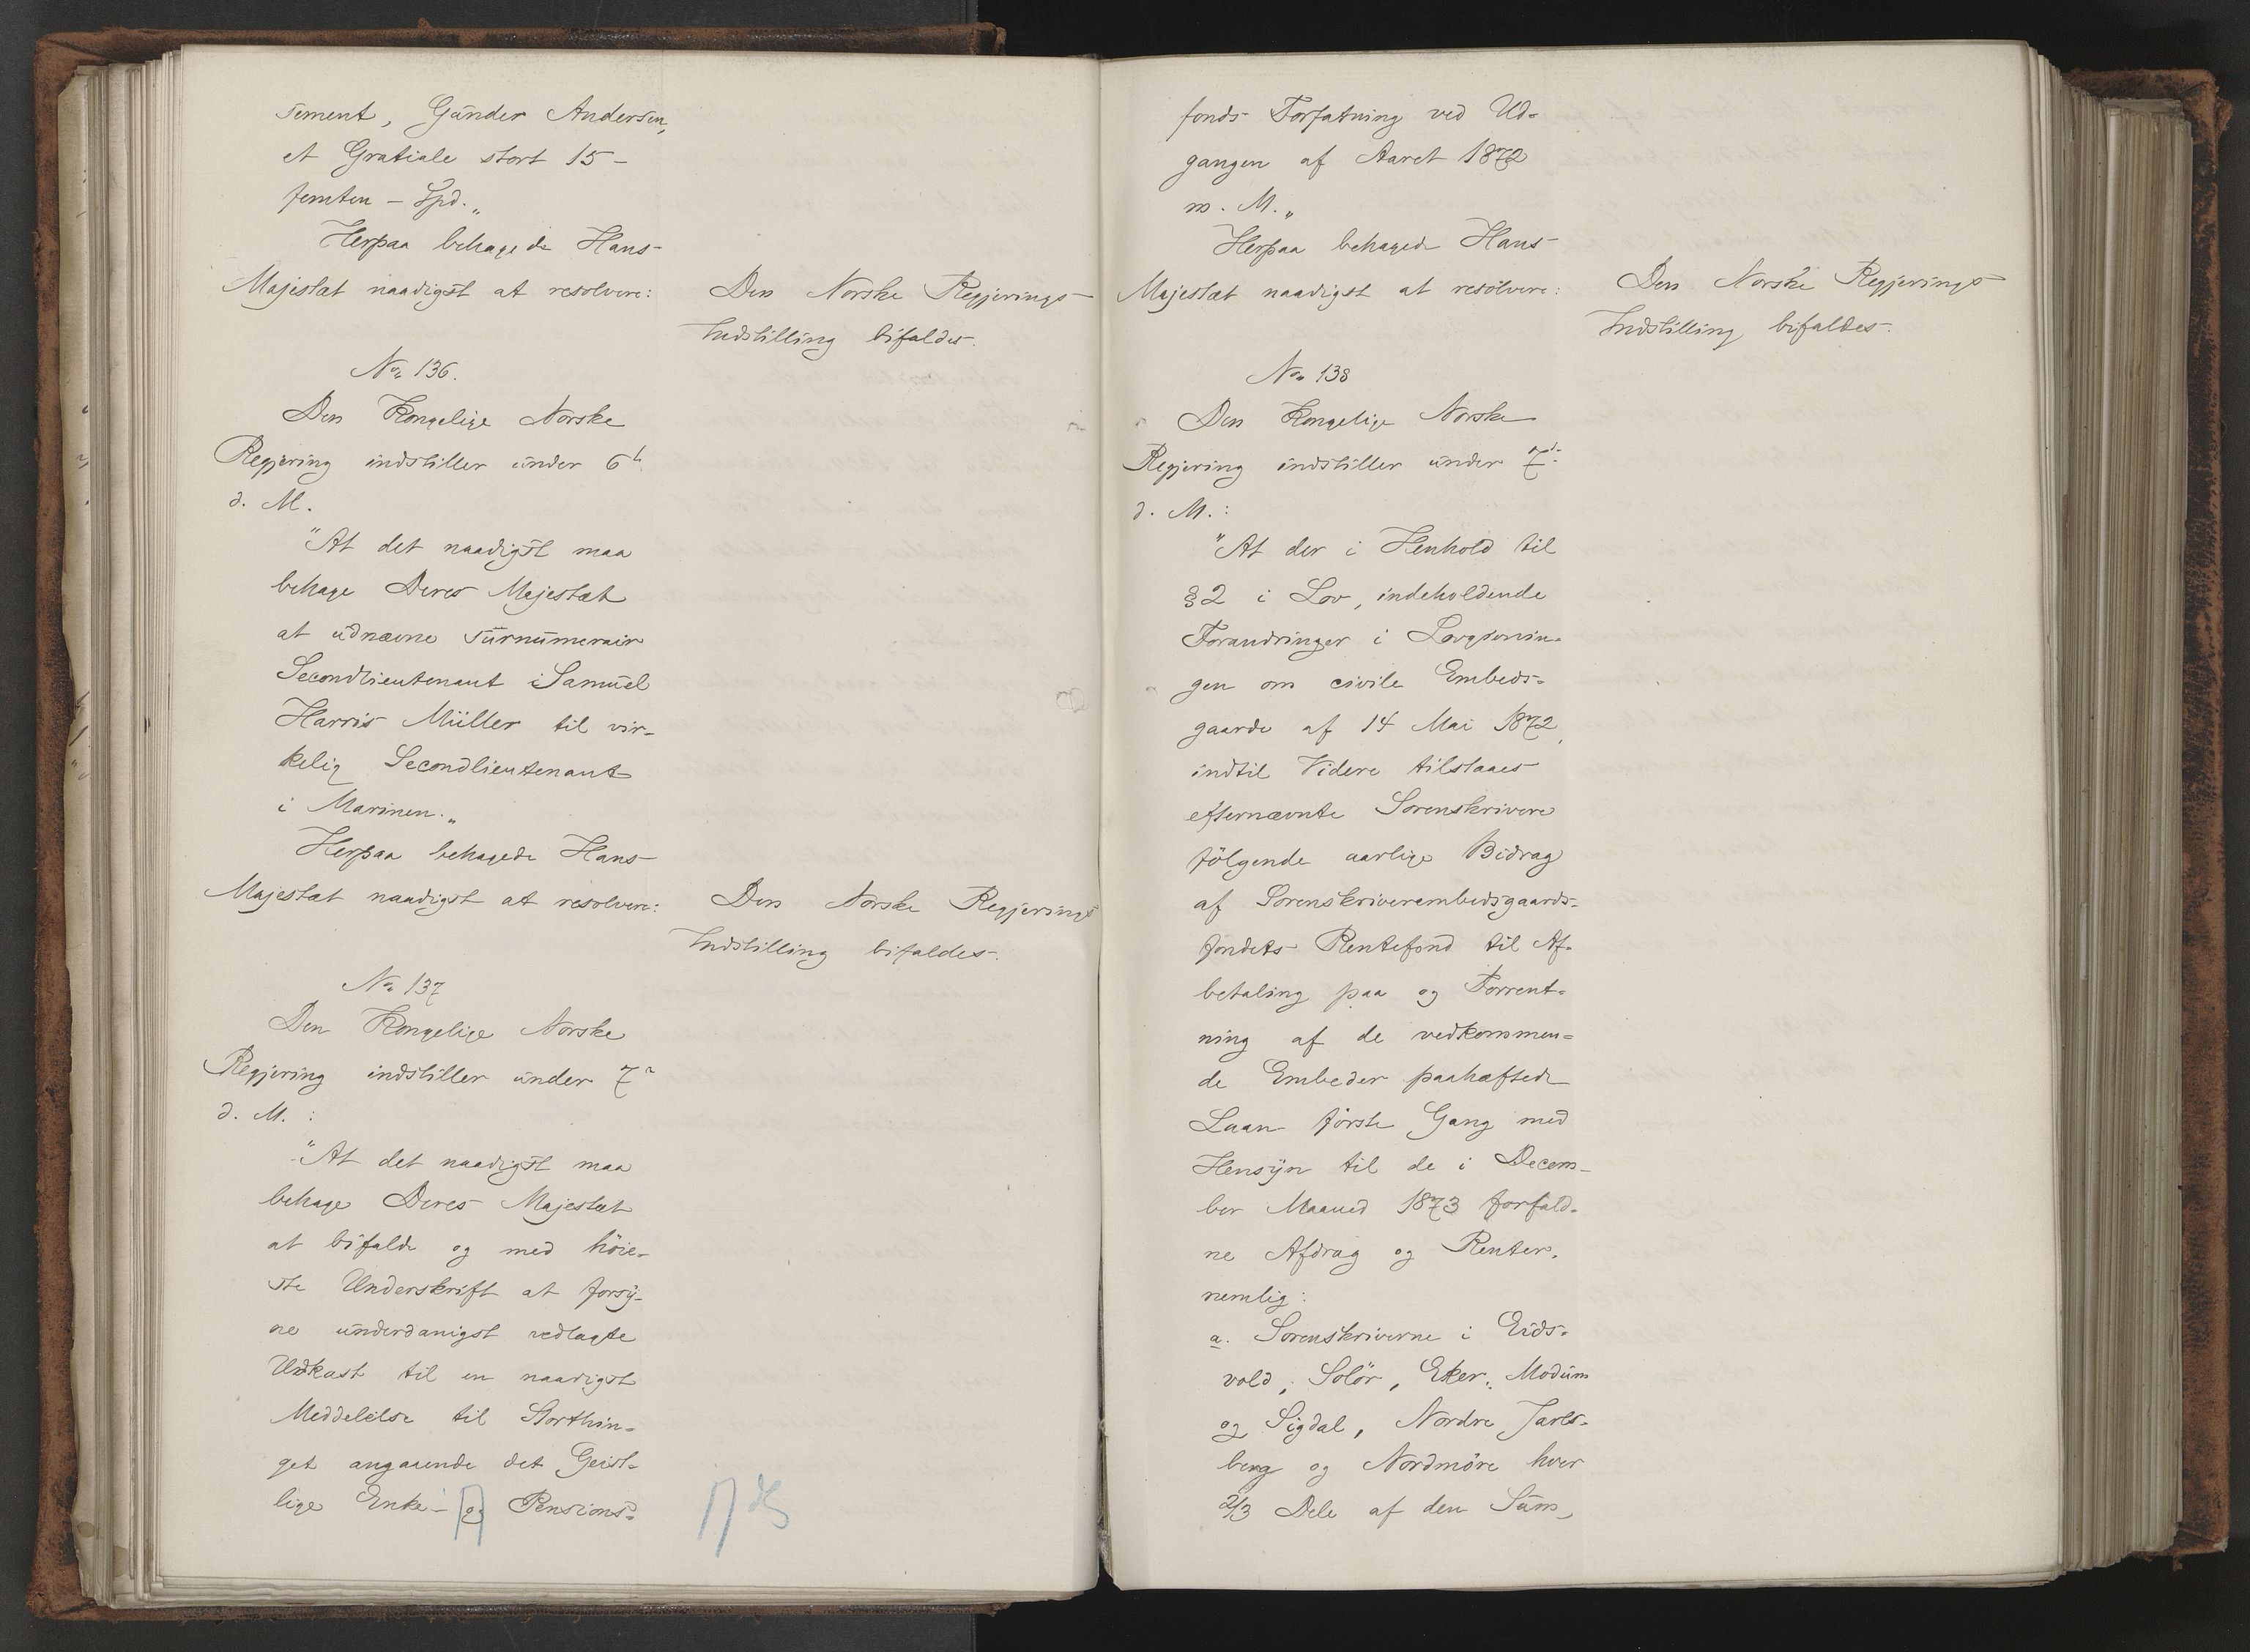 sement, Gunder Andersen,
et Gratiale stort 15 -
femten - Spd."
Herpaa behagede Hans
Majestæt naadigst at resolvere:
Den Norske Regjerings
Indstilling bifaldes.
No 136.
Den Kongelige Norske
Regjering indstiller under 6t
d. M.
"At det naadigst maa
behage Deres Majestæt
at udnævne surnumerair
Secondlieutenant Samuel
Harris Müller til vir-
kelig Secondlieutenant
i Marinen."
Herpaa behagede Hans
Majestæt naadigst at resolvere:
Den Norske Regjerings
Indstilling bifaldes.
No 137
Den Kongelige Norske
Regjering indstiller under 7
d. M. :
"At det naadigst maa
behage Deres Majestæt
at bifalde og med høie-
ste Underskrift at forsy-
ne underdanigst vedlagte
Udkast til en naadigst
Meddelelse til Storthin-
get angaaende det Geist-
lige Enke- og Pensions-
fonds Forfatning ved Ud-
gangen af Aaret 1872
m. M."
Herpaa behagede Hans
Majestæt naadigst at resolvere:
Den Norske Regjerings
Indstilling bifaldes.
No 138
Den Kongelige Norske
Regjering indstiller under 7d
d. M.:
"At der i Henhold til
§ 2 i Lov, indeholdende
Forandringer i Lovgivnin-
gen om civile Embeds-
gaarde af 14 Mai 1872,
indtil Videre tilstaaes
efternævnte Sorenskrivere
følgende aarlige Bidrag
af Sorenskriverembedsgaards-
fondets Rentefond til Af-
betaling paa og Forrent-
ning af de vedkommen-
de Embeder paahæftede
Laan første Gang med
Hensyn til de i Decem-
ber Maaned 1873 forfald-
ne Afdrag og Renter,
nemlig:
a. Sorenskriverne i Eids-
vold, Solør, Eker, Modum
og Sigdal, Nordre Jarls-
berg og Nordmøre hver
2/3 Dele af den Sum,